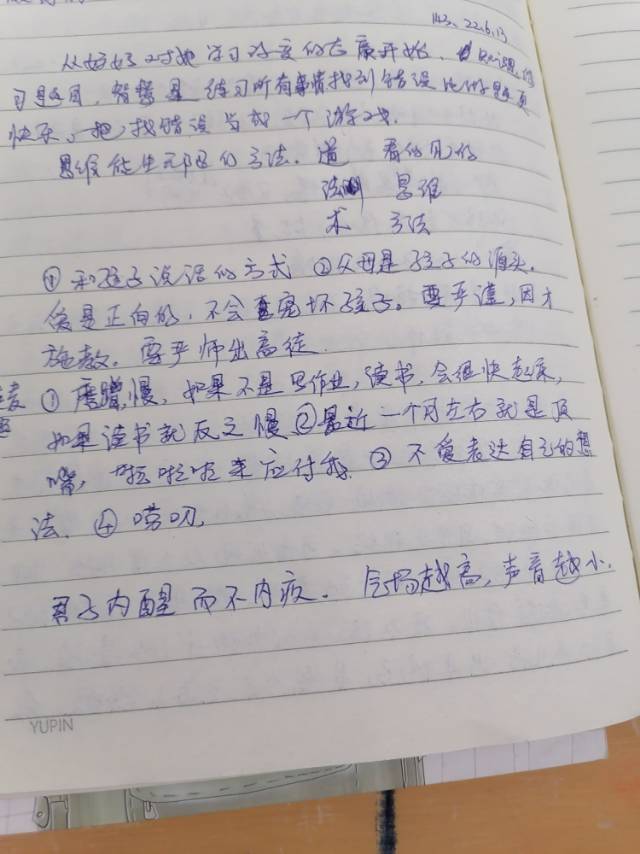 22.6.13
从好好对她学习态度的态度开始,
习题目,智慧是练习所有事情找到错误比做题更
快乐、把找错误当成一个游戏。
思维能生的方法. 道 看的见的
法则 思维
术 方法
① 和孩子说话的方式 ②父母是孩子的源头。
爱是正向的,不会宠坏孩子。要严谨,因才
施教。要严师出高徒.
① 磨蹭,慢,如果不是写作业,读书,会很快起床,
如果读书就反之慢 ②最近一个月左右就是顶
嘴,啦啦啦来应付我. ③ 不爱表达自己的想
法. ④ 唠叨,
君子内醒而不内疚. 气场越高,声音越小.
YUPIN